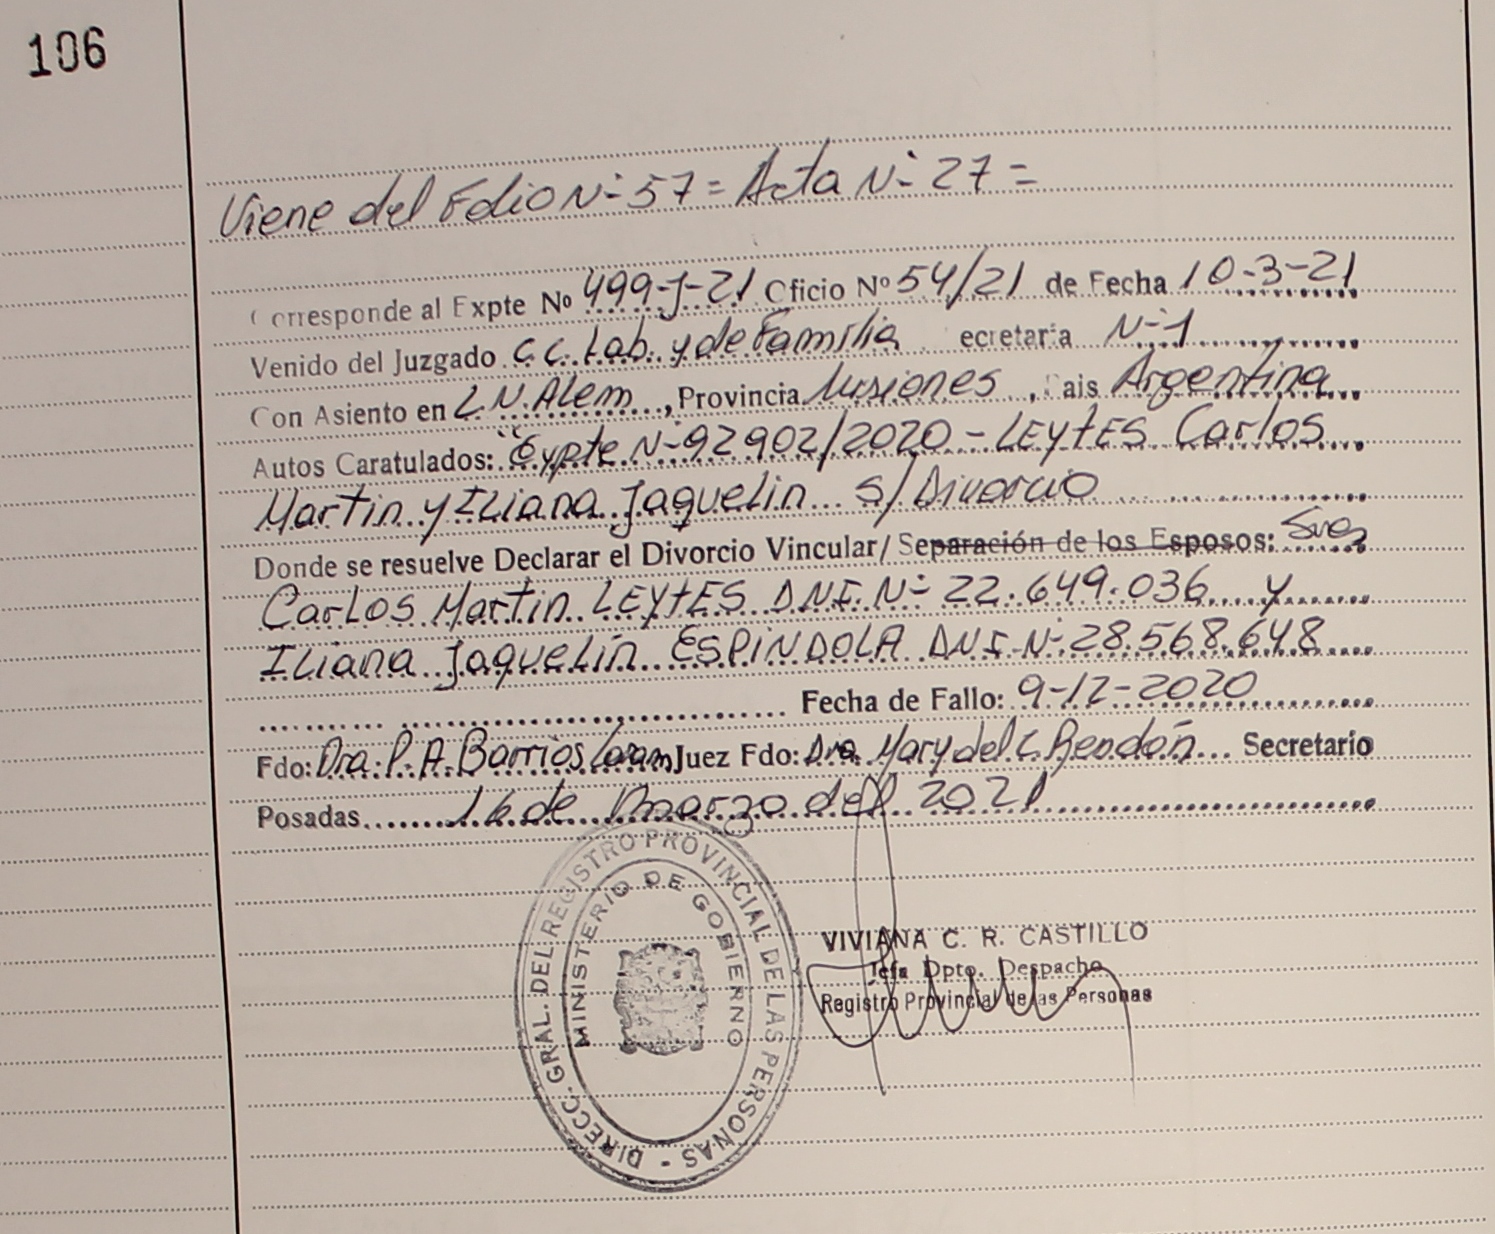 106
Viene del Folio N- 57= Acta N- 27 =
Corresponde al Expte Nº 499-J-21 Oficio Nº 54/21 de Fecha 10-3-21
Venido del Juzgado C.C. Lab. y de Familia ecretaria N-1
Con Asiento en L.N. Alem, Provincia Misiones, Pais Argentina
Autos Caratulados: "Expte N-92902/2020 - LEYtES Carlos
Martin y Iliana Jaquelin s/ Divorcio
Donde se resuelve Declarar el Divorcio Vincular/ Separación de los Esposos:
Carlos Martin LEYtES DNI. N- 22.649.036 y
Iliana Jaquelin ESPINDOLA DNI-N- 28.568.648
Fecha de Fallo: 9-12-2020
Fdo: Dra. P. A. Barrios Juez Fdo: Dra. Mary del C. Rendón Secretario
Posadas 16 de Marzo del 2021
DIRECC. GRAL. DEL REGISTRO PROVINCIAL DE LAS PERSONAS -
MINISTERIO DE GOBIERNO
VIVIANA C. R. CASTILLO
Jefa Dpto. Despacho
Registro Provincial de las Personas